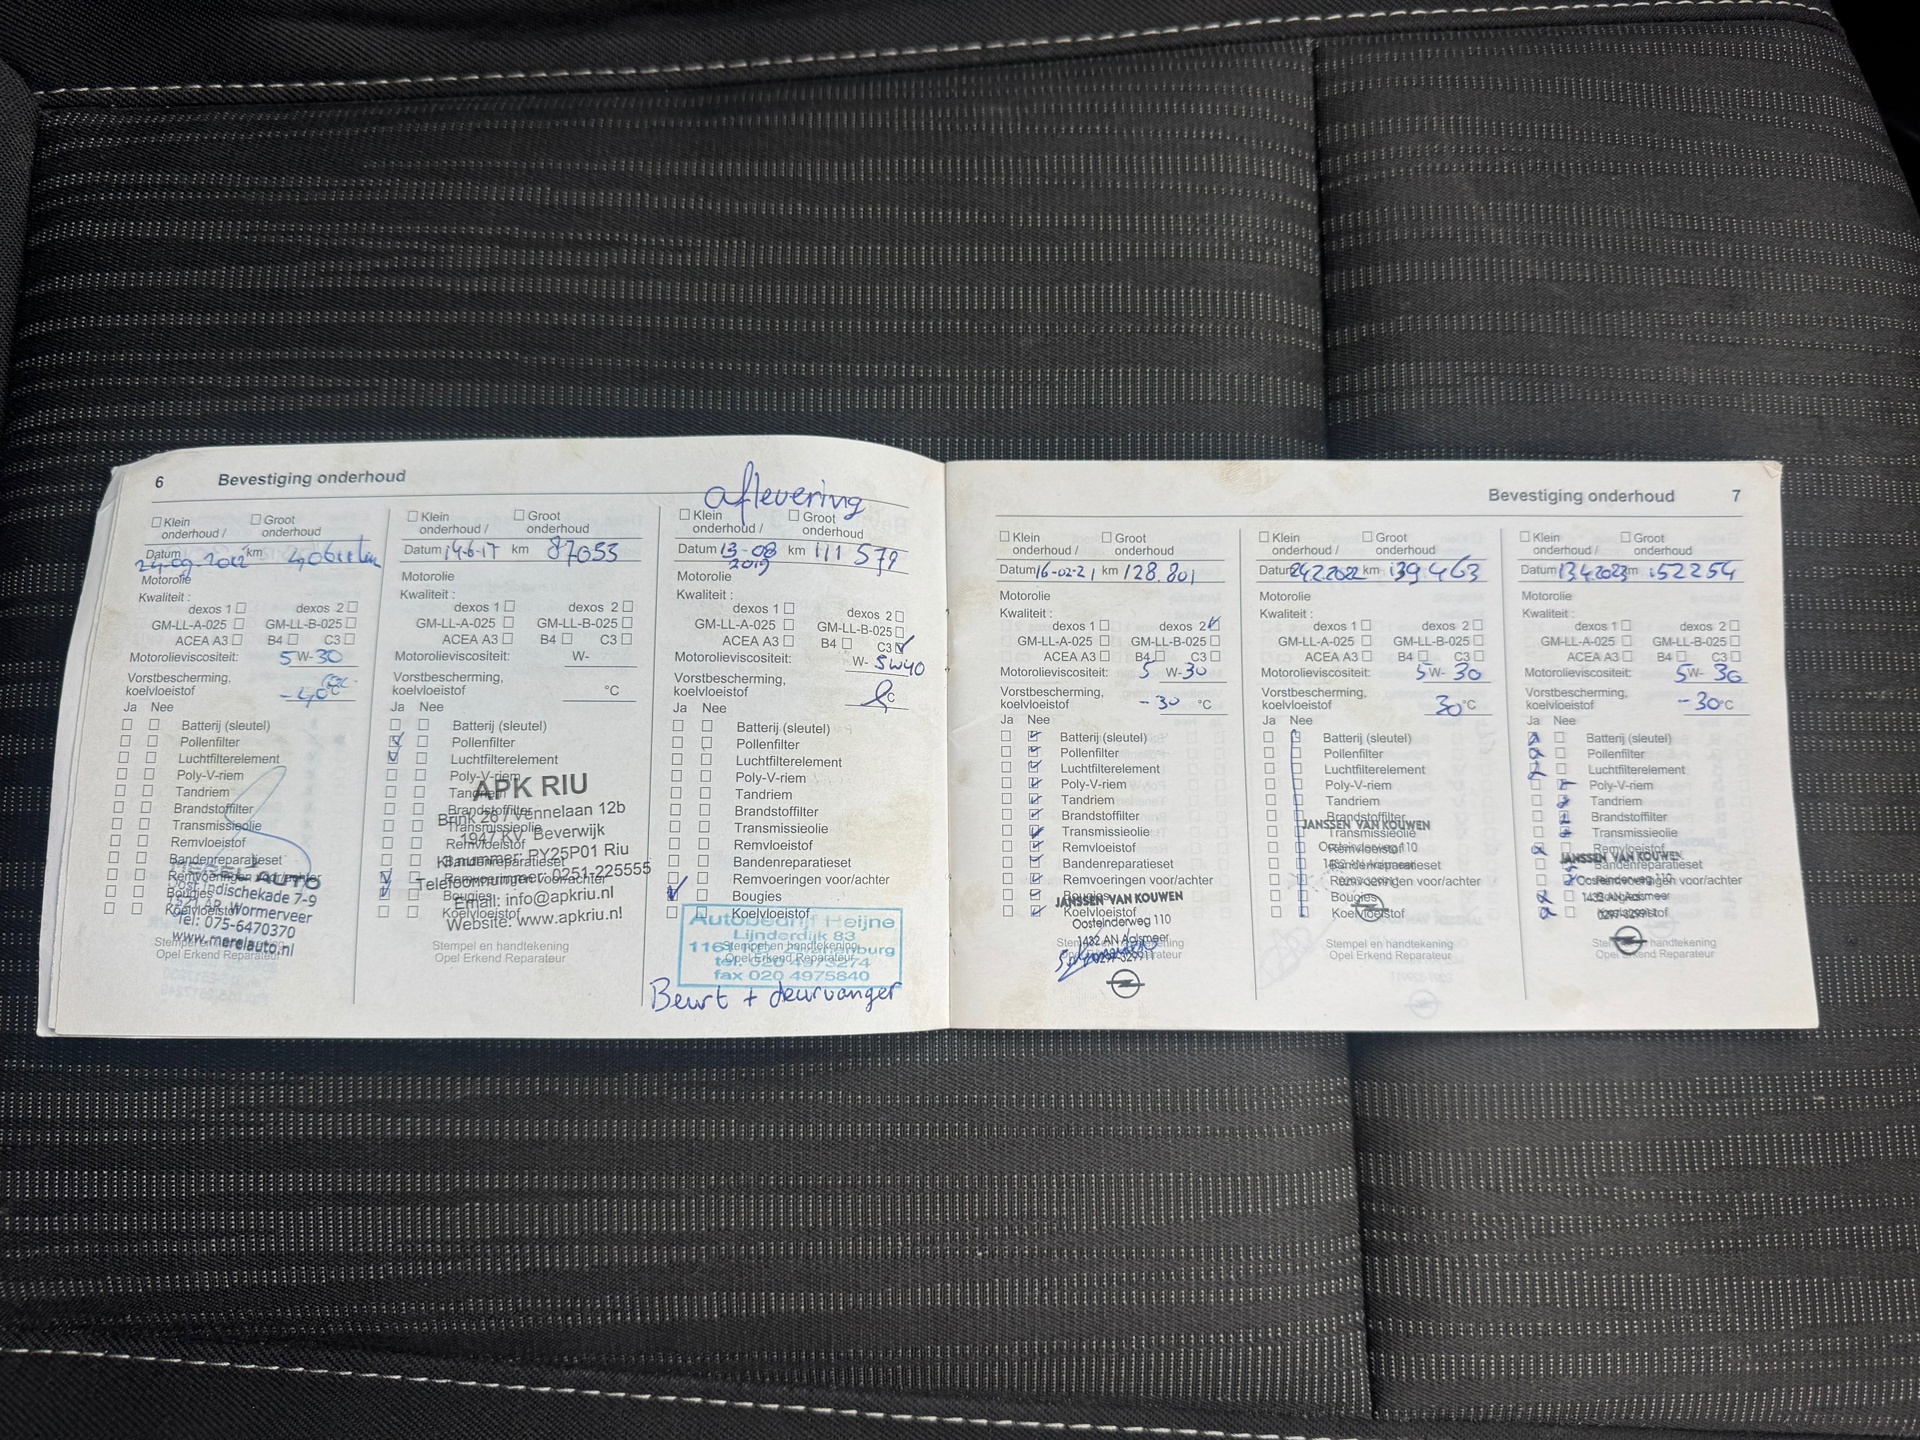 6 Bevestiging onderhoud
Klein onderhoud / Groot onderhoud
Datum km
Motorolie
Kwaliteit :
dexos 1 dexos 2
GM-LL-A-025 GM-LL-B-025
ACEA A3 B4 C3
Motorolieviscositeit: 5 W- 30
Vorstbescherming,
koelvloeistof -40°C
Ja Nee
Batterij (sleutel)
Pollenfilter
Luchtfilterelement
Poly-V-riem
Tandriem
Brandstoffilter
Transmissieolie
Remvloeistof
Bandenreparatieset
Remvoeringen voor/achter
Bougies
Koelvloeistof
AUTO
Oostindischekade 7-9
Wormerveer
Tel: 075-6470370
www.merelauto.nl
Stempel en handtekening
Opel Erkend Reparateur
Klein onderhoud / Groot onderhoud
Datum 14-6-17 km 87053
Motorolie
Kwaliteit :
dexos 1 dexos 2
GM-LL-A-025 GM-LL-B-025
ACEA A3 B4 C3
Motorolieviscositeit: W-
Vorstbescherming,
koelvloeistof °C
Ja Nee
Batterij (sleutel)
Pollenfilter
Luchtfilterelement
Poly-V-riem
Tandriem
Brandstoffilter
Transmissieolie
Remvloeistof
Bandenreparatieset
Remvoeringen voor/achter
Bougies
Koelvloeistof
APK RIU
Brink 267 Vennelaan 12b
1947 KV, Beverwijk
PY25P01 Riu
Telefoonnummer: 0251-225555
Email: info@apkriu.nl
Website: www.apkriu.nl
Stempel en handtekening
Opel Erkend Reparateur
aflevering
Klein onderhoud / Groot onderhoud
Datum 13-08 2019 km 111 579
Motorolie
Kwaliteit :
dexos 1 dexos 2
GM-LL-A-025 GM-LL-B-025
ACEA A3 B4 C3
Motorolieviscositeit: W- 5W40
Vorstbescherming,
koelvloeistof °C
Ja Nee
Batterij (sleutel)
Pollenfilter
Luchtfilterelement
Poly-V-riem
Tandriem
Brandstoffilter
Transmissieolie
Remvloeistof
Bandenreparatieset
Remvoeringen voor/achter
Bougies
Koelvloeistof
Autobedrijf Heijne
Lijnderdijk 83
tel. 020 4973274
fax 020 4975840
Stempel en handtekening
Opel Erkend Reparateur
Beurt + deurvanger
Bevestiging onderhoud 7
Klein onderhoud / Groot onderhoud
Datum 16-02-21 km 128.801
Motorolie
Kwaliteit :
dexos 1 dexos 2
GM-LL-A-025 GM-LL-B-025
ACEA A3 B4 C3
Motorolieviscositeit: 5 W-30
Vorstbescherming,
koelvloeistof -30 °C
Ja Nee
Batterij (sleutel)
Pollenfilter
Luchtfilterelement
Poly-V-riem
Tandriem
Brandstoffilter
Transmissieolie
Remvloeistof
Bandenreparatieset
Remvoeringen voor/achter
Bougies
Koelvloeistof
JANSSEN VAN KOUWEN
Oosteinderweg 110
1432 AN Aalsmeer
Stempel en handtekening
Opel Erkend Reparateur
Klein onderhoud / Groot onderhoud
Datum 24.2.2022 km 139463
Motorolie
Kwaliteit :
dexos 1 dexos 2
GM-LL-A-025 GM-LL-B-025
ACEA A3 B4 C3
Motorolieviscositeit: 5W- 30
Vorstbescherming,
koelvloeistof 30°C
Ja Nee
Batterij (sleutel)
Pollenfilter
Luchtfilterelement
Poly-V-riem
Tandriem
Brandstoffilter
JANSSEN VAN KOUWEN
Transmissieolie
Oosteinderweg 110
Remvloeistof
Bandenreparatieset
Remvoeringen voor/achter
Bougies
Koelvloeistof
Stempel en handtekening
Opel Erkend Reparateur
Klein onderhoud / Groot onderhoud
Datum 13.4.2023 km 152254
Motorolie
Kwaliteit :
dexos 1 dexos 2
GM-LL-A-025 GM-LL-B-025
ACEA A3 B4 C3
Motorolieviscositeit: 5W- 30
Vorstbescherming,
koelvloeistof -30°C
Ja Nee
Batterij (sleutel)
Pollenfilter
Luchtfilterelement
Poly-V-riem
Tandriem
Brandstoffilter
Transmissieolie
Remvloeistof
JANSSEN VAN KOUWEN
Bandenreparatieset
Oosteinderweg 110
Remvoeringen voor/achter
Bougies
Koelvloeistof
Stempel en handtekening
Opel Erkend Reparateur